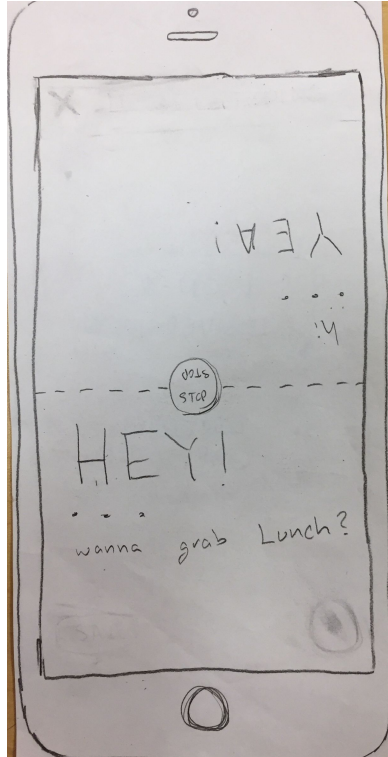 hi
...
YEA!
STOP
STOP
HEY!
...
wanna grab Lunch?